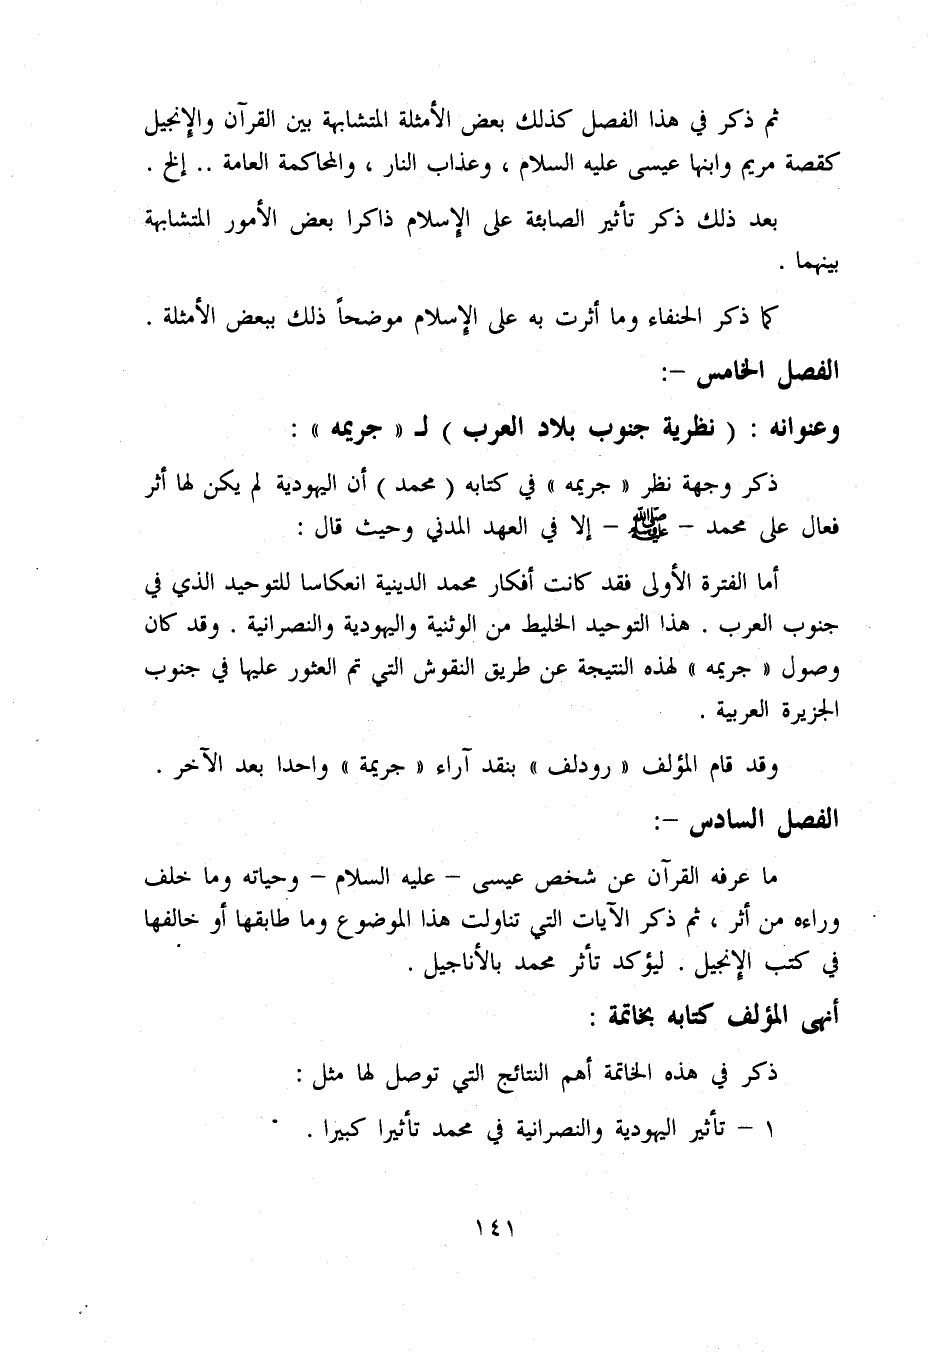 ثم ذكر في هذا الفصل كذلك بعض الأمثلة المتشابهة بين القرآن والإنجيل
كقصة مريم وابنها عيسى عليه السلام ، وعذاب النار ، والمحاكمة العامة .. إلخ .
بعد ذلك ذكر تأثير الصابئة على الإسلام ذاكرا بعض الأمور المتشابهة
بينهما .
كما ذكر الحنفاء وما أثرت به على الإسلام موضحاً ذلك ببعض الأمثلة .
الفصل الخامس –:
وعنوانه : ( نظرية جنوب بلاد العرب ) لـ « جريمه » :
ذكر وجهة نظر « جريمه » في كتابه ( محمد ) أن اليهودية لم يكن لها أثر
فعال على محمد – ﷺ – إلا في العهد المدني وحيث قال :
أما الفترة الأولى فقد كانت أفكار محمد الدينية انعكاسا للتوحيد الذي في
جنوب العرب . هذا التوحيد الخليط من الوثنية واليهودية والنصرانية . وقد كان
وصول « جريمه » لهذه النتيجة عن طريق النقوش التي تم العثور عليها في جنوب
الجزيرة العربية .
وقد قام المؤلف « رودلف » بنقد آراء « جريمة » واحدا بعد الآخر .
الفصل السادس –:
ما عرفه القرآن عن شخص عيسى – عليه السلام – وحياته وما خلف
وراءه من أثر ، ثم ذكر الآيات التي تناولت هذا الموضوع وما طابقها أو خالفها
في كتب الإنجيل . ليؤكد تأثر محمد بالأناجيل .
أنهى المؤلف كتابه بخاتمة :
ذكر في هذه الخاتمة أهم النتائج التي توصل لها مثل :
١ – تأثير اليهودية والنصرانية في محمد تأثيرا كبيرا .
١٤١